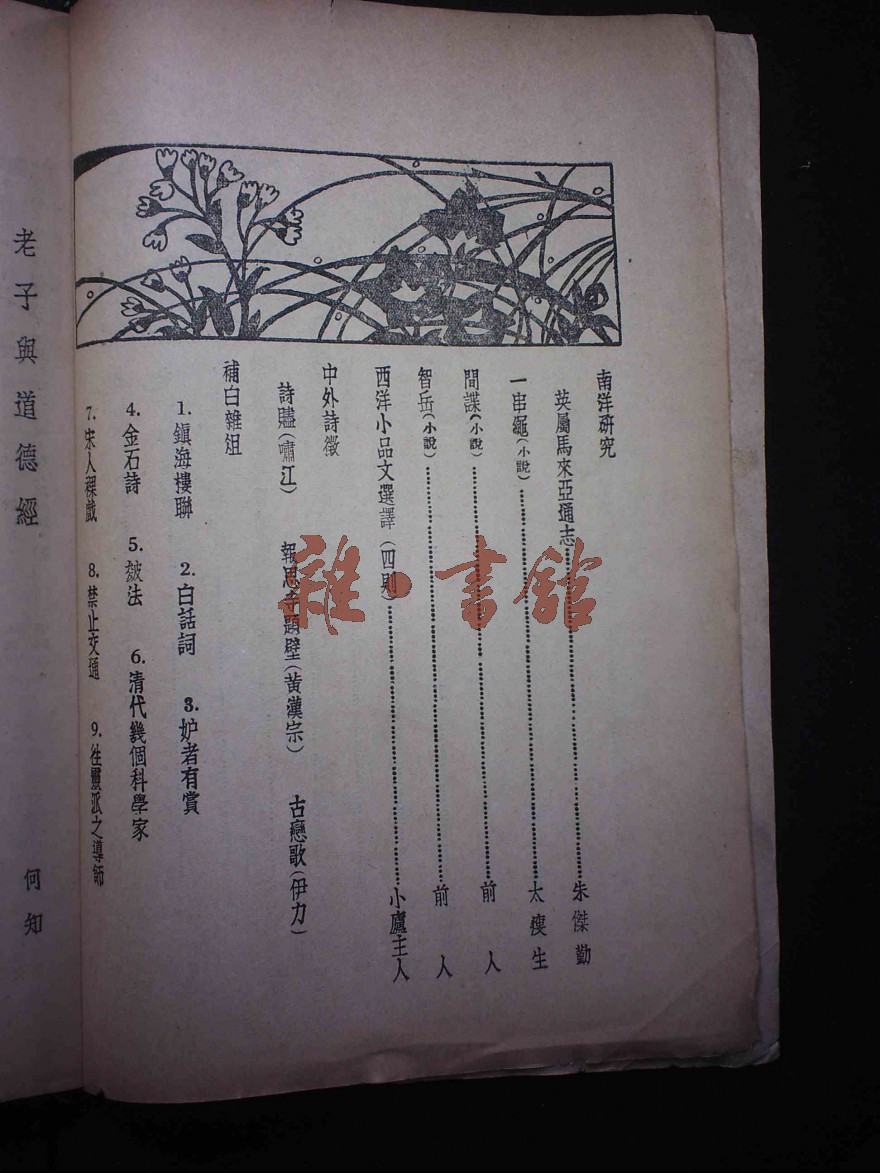 南洋研究
英屬馬來亞通志……朱傑勤
一串繩(小說)……太瘦生
間諜(小說)……前人
智岳(小說)……前人
西洋小品文選譯(四則)……小廬主人
中外詩徵
詩贐(嘯江) 報恩寺題壁(黃漢宗) 古戀歌(伊力)
補白雜俎
1.鎮海樓聯 2.白話詞 3.妒者有賞
4.金石詩 5.皴法 6.清代幾個科學家
7.宋人稞戲 8.禁止交通 9.性靈派之導師
老子與道德經 何知
雜·書館